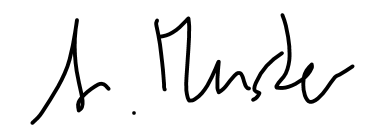 A. Muster